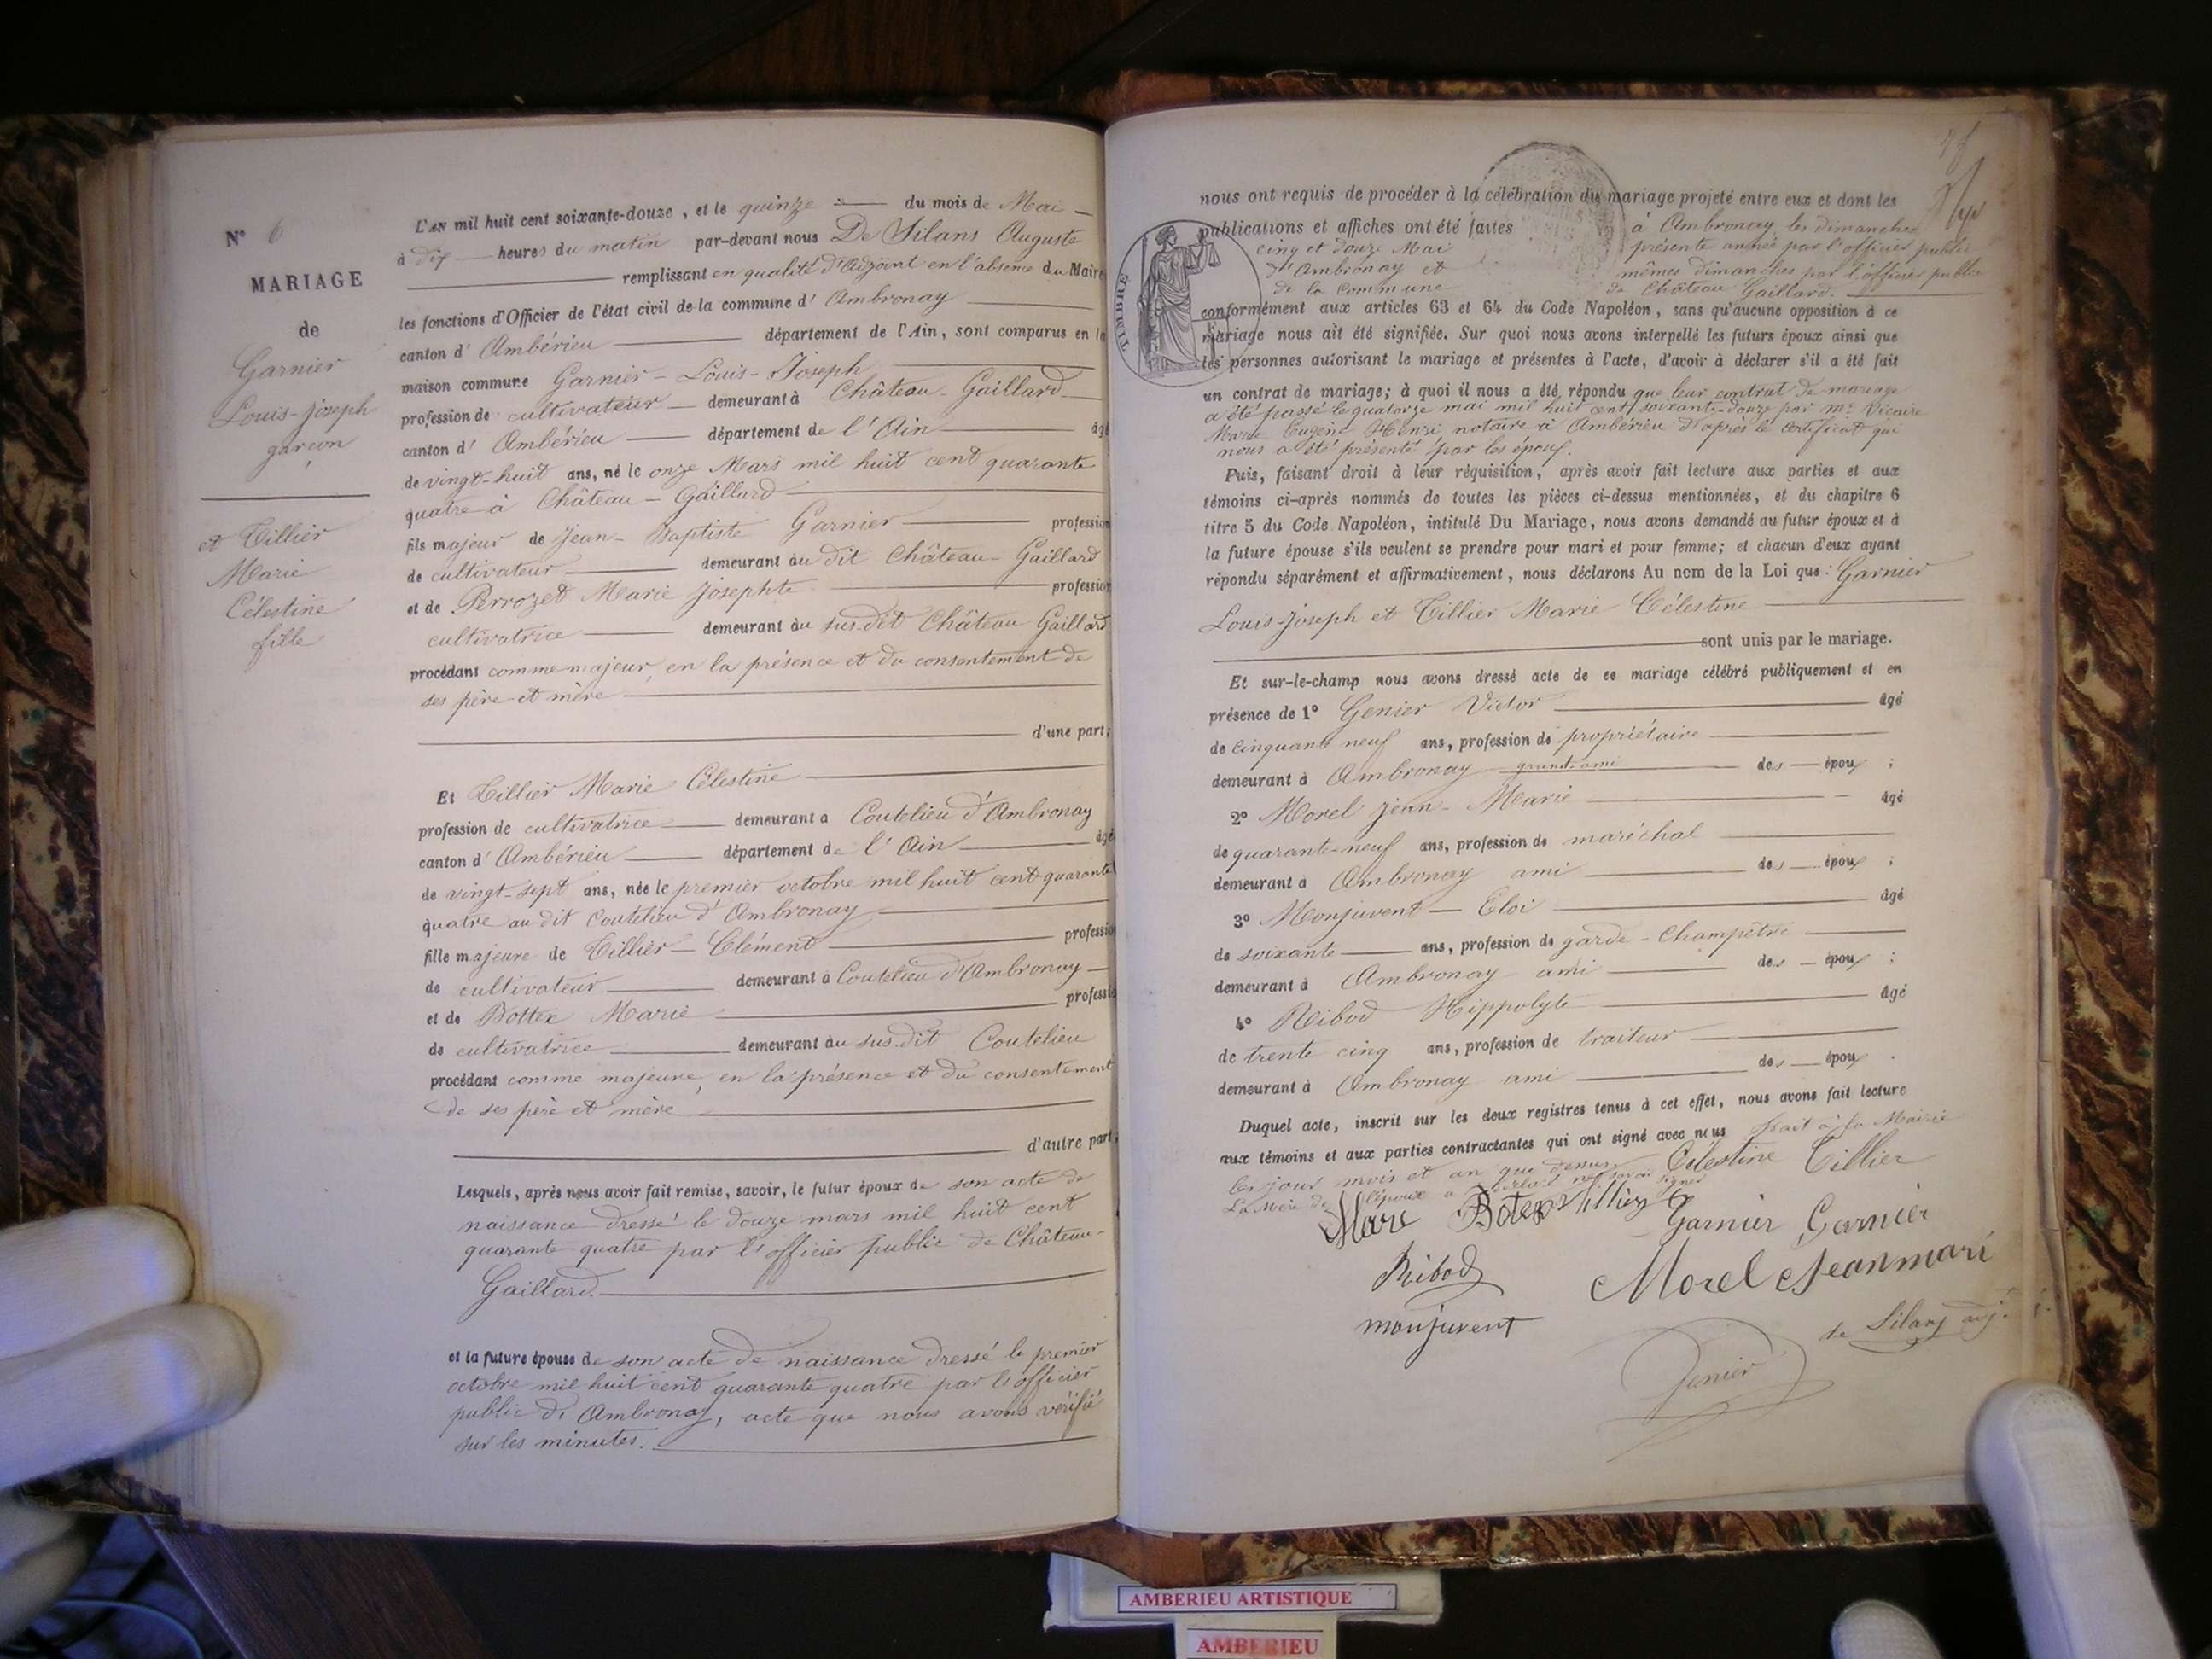 N° 6
MARIAGE
de
Garnier
Louis-joseph
garçon
et Tillier
Marie
Célestine
fille
L'AN mil huit cent soixante-douze, et le quinze du mois de Mai
à dix heures du matin par-devant nous De Silans Auguste
remplissant en qualité d'Adjoint en l'absence du Maire
les fonctions d'Officier de l'état civil de la commune d' Ambronay
canton d' Ambérieu département de l'Ain, sont comparus en la
maison commune Garnier - Louis - Joseph
profession de cultivateur demeurant à Château-Gaillard
canton d' Ambérieu département de l'Ain âgé
de vingt-huit ans, né le onze Mars mil huit cent quarante
quatre à Château-Gaillard
fils majeur de Jean-Baptiste Garnier profession
de cultivateur demeurant au dit Château-Gaillard
et de Perrozet Marie Josephte profession
cultivatrice demeurant au sus.dit Château Gaillard
procédant comme majeur, en la présence et du consentement de
ses père et mère
d'une part;
Et Tillier Marie Célestine
profession de cultivatrice demeurant à Coutelieu d'Ambronay
canton d' Ambérieu département de l'Ain âgé
de vingt-sept ans, née le premier octobre mil huit cent quarante
quatre au dit Coutelieu d'Ambronay
fille majeure de Tillier - Clément profession
de cultivateur demeurant à Coutelieu d'Ambronay
et de Bottex Marie profession
de cultivatrice demeurant au sus.dit Coutelieu
procédant comme majeure, en la présence et du consentement
de ses père et mère
d'autre part;
Lesquels, après nous avoir fait remise, savoir, le futur époux de son acte de
naissance dressé le douze mars mil huit cent
quarante quatre par l'officier public de Château-
Gaillard.
et la future épouse de son acte de naissance dressé le premier
octobre mil huit cent quarante quatre par l'officier
public d'Ambronay, acte que nous avons vérifié
sur les minutes.
nous ont requis de procéder à la célébration du mariage projeté entre eux et dont les
publications et affiches ont été faites à Ambronay les dimanches
cinq et douze Mai présente année par l'officier public
d'Ambronay et mêmes dimanches par l'officier public
de la Commune de Château Gaillard.
TIMBRE
conformément aux articles 63 et 64 du Code Napoléon, sans qu'aucune opposition à ce
mariage nous ait été signifiée. Sur quoi nous avons interpellé les futurs époux ainsi que
les personnes autorisant le mariage et présentes à l'acte, d'avoir à déclarer s'il a été fait
un contrat de mariage; à quoi il nous a été répondu que leur contrat de mariage
a été passé le quatorze mai mil huit cent soixante-douze par Me Vicaire
Marie Eugène Henri notaire à Ambérieu d'après le certificat qui
nous a été présenté par les époux.
Puis, faisant droit à leur réquisition, après avoir fait lecture aux parties et aux
témoins ci-après nommés de toutes les pièces ci-dessus mentionnées, et du chapitre 6
titre 5 du Code Napoléon, intitulé Du Mariage, nous avons demandé au futur époux et à
la future épouse s'ils veulent se prendre pour mari et pour femme; et chacun d'eux ayant
répondu séparément et affirmativement, nous déclarons Au nom de la Loi que : Garnier
Louis-joseph et Tillier Marie Célestine
sont unis par le mariage.
Et sur-le-champ nous avons dressé acte de ce mariage célébré publiquement et en
présence de 1° Genier Victor âgé
de cinquante neuf ans, profession de propriétaire
demeurant à Ambronay grand-ami des époux ;
2° Morel Jean-Marie âgé
de quarante-neuf ans, profession de maréchal
demeurant à Ambronay ami des époux ;
3° Monjuvent - Eloi âgé
de soixante ans, profession de garde-Champêtre
demeurant à Ambronay ami des époux ;
4° Ribod Hippolyte âgé
de trente cinq ans, profession de traiteur
demeurant à Ambronay ami des époux .
Duquel acte, inscrit sur les deux registres tenus à cet effet, nous avons fait lecture
aux témoins et aux parties contractantes qui ont signé avec nous fait à la Mairie
les jour mois et an que dessus
La mère de l'époux a déclaré ne savoir signer
Célestine Tillier
Marie Botex Tillier
Garnier Garnier
Ribod
Morel Jeanmari
monjuvent
de Silans adj.
Genier
AMBERIEU ARTISTIQUE
AMBERIEU